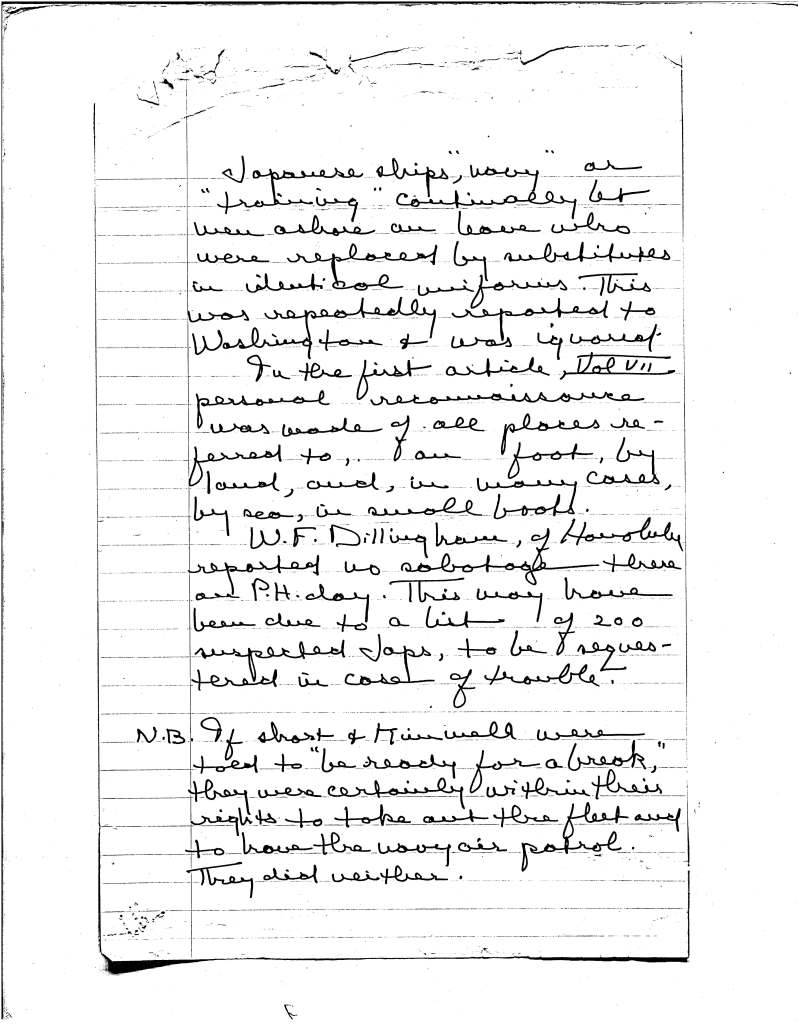 Japanese ships, "navy" or
"training" continually let
men ashore on leave who
were replaced by substitutes
in identical uniforms. This
was repeatedly reported to
Washington & was ignored.
In the first article, Vol VII
personal reconnaissance
was made of all places re-
ferred to, on foot, by
land, and, in many cases,
by sea, in small boats.
W.F. Dillingham, of Honolulu
reported no sabotage there
on P.H. day. This may have
been due to a list of 200
suspected Japs, to be seques-
tered in case of trouble.
N.B. If Short & Kimmell were
told to "be ready for a break,"
they were certainly within their
rights to take out the fleet and
to have the navy air patrol.
They did neither.